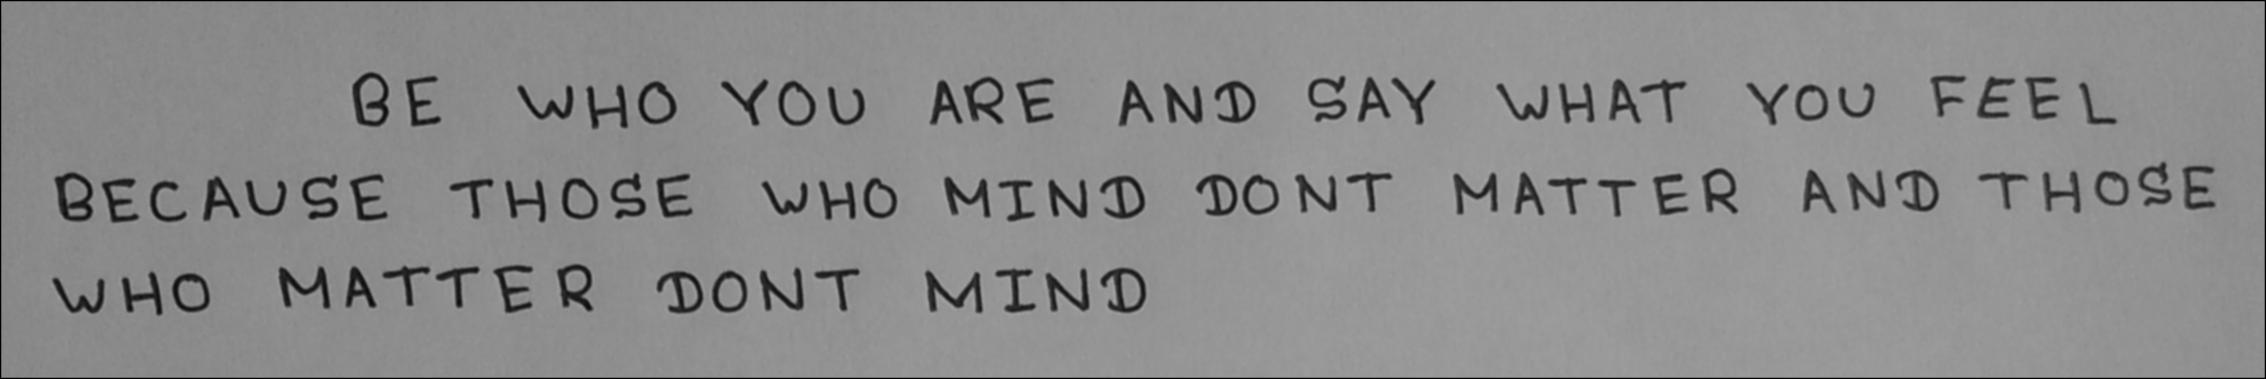 BE WHO YOU ARE AND SAY WHAT YOU FEEL
BECAUSE THOSE WHO MIND DONT MATTER AND THOSE
WHO MATTER DONT MIND